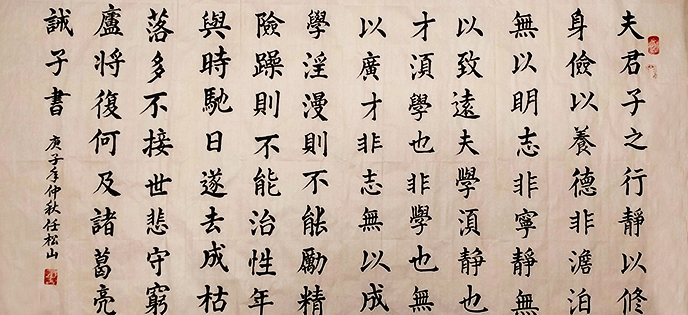 夫君子之行靜以修
身儉以養德非澹泊
無以明志非寧靜無
以致遠夫學湏靜也
才湏學也非學也無
以廣才非志無以成
學淫漫則不能勵精
險躁則不能治性年
與時馳日遂去成枯
落多不接世悲守窮
廬將復何及諸葛亮
誡子書
庚子年仲秋任松山